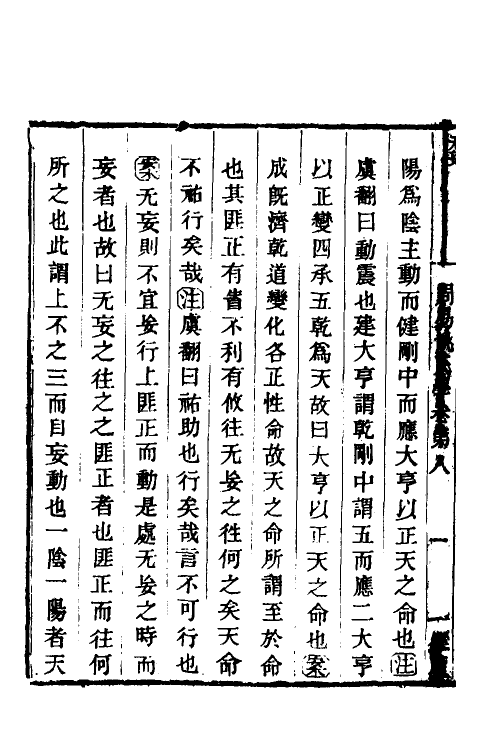 陽爲陰主動而健剛中而應大亨以正天之命也注
虞翻曰動震也建大亨謂乾剛中謂五而應二大亨
以正變四承五乾爲天故曰大亨以正天之命也案
成旣濟乾道變化各正性命故天之命所謂至於命
也其匪正有眚不利有攸往无妄之往何之矣天命
不祐行矣哉注虞翻曰祐助也行矣哉言不可行也
案无妄則不宜妄行上匪正而動是處无妄之時而
妄者也故曰无妄之往之之匪正者也匪正而往何
所之也此謂上不之三而自妄動也一陰一陽者天
周易姚氏學卷第八
一